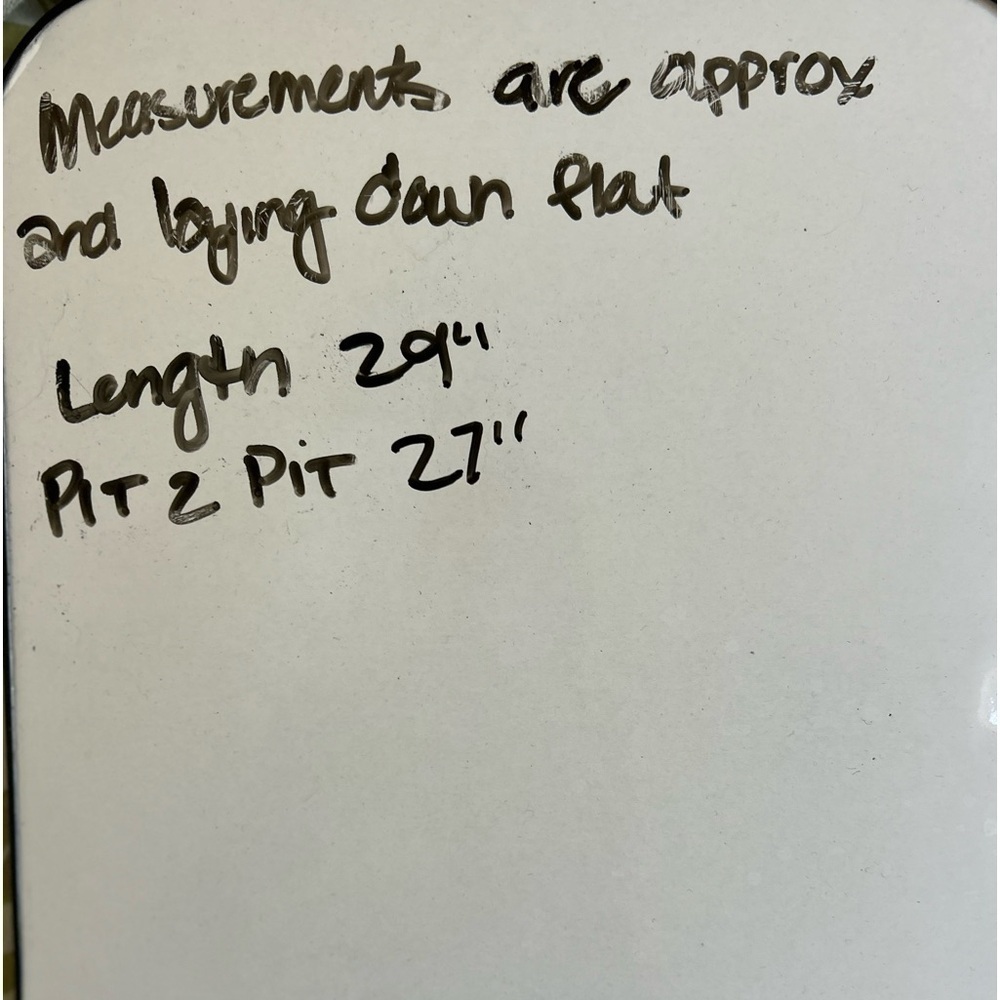 Measurements are approx
and laying down flat
Length 29"
PIT 2 PIT 27"